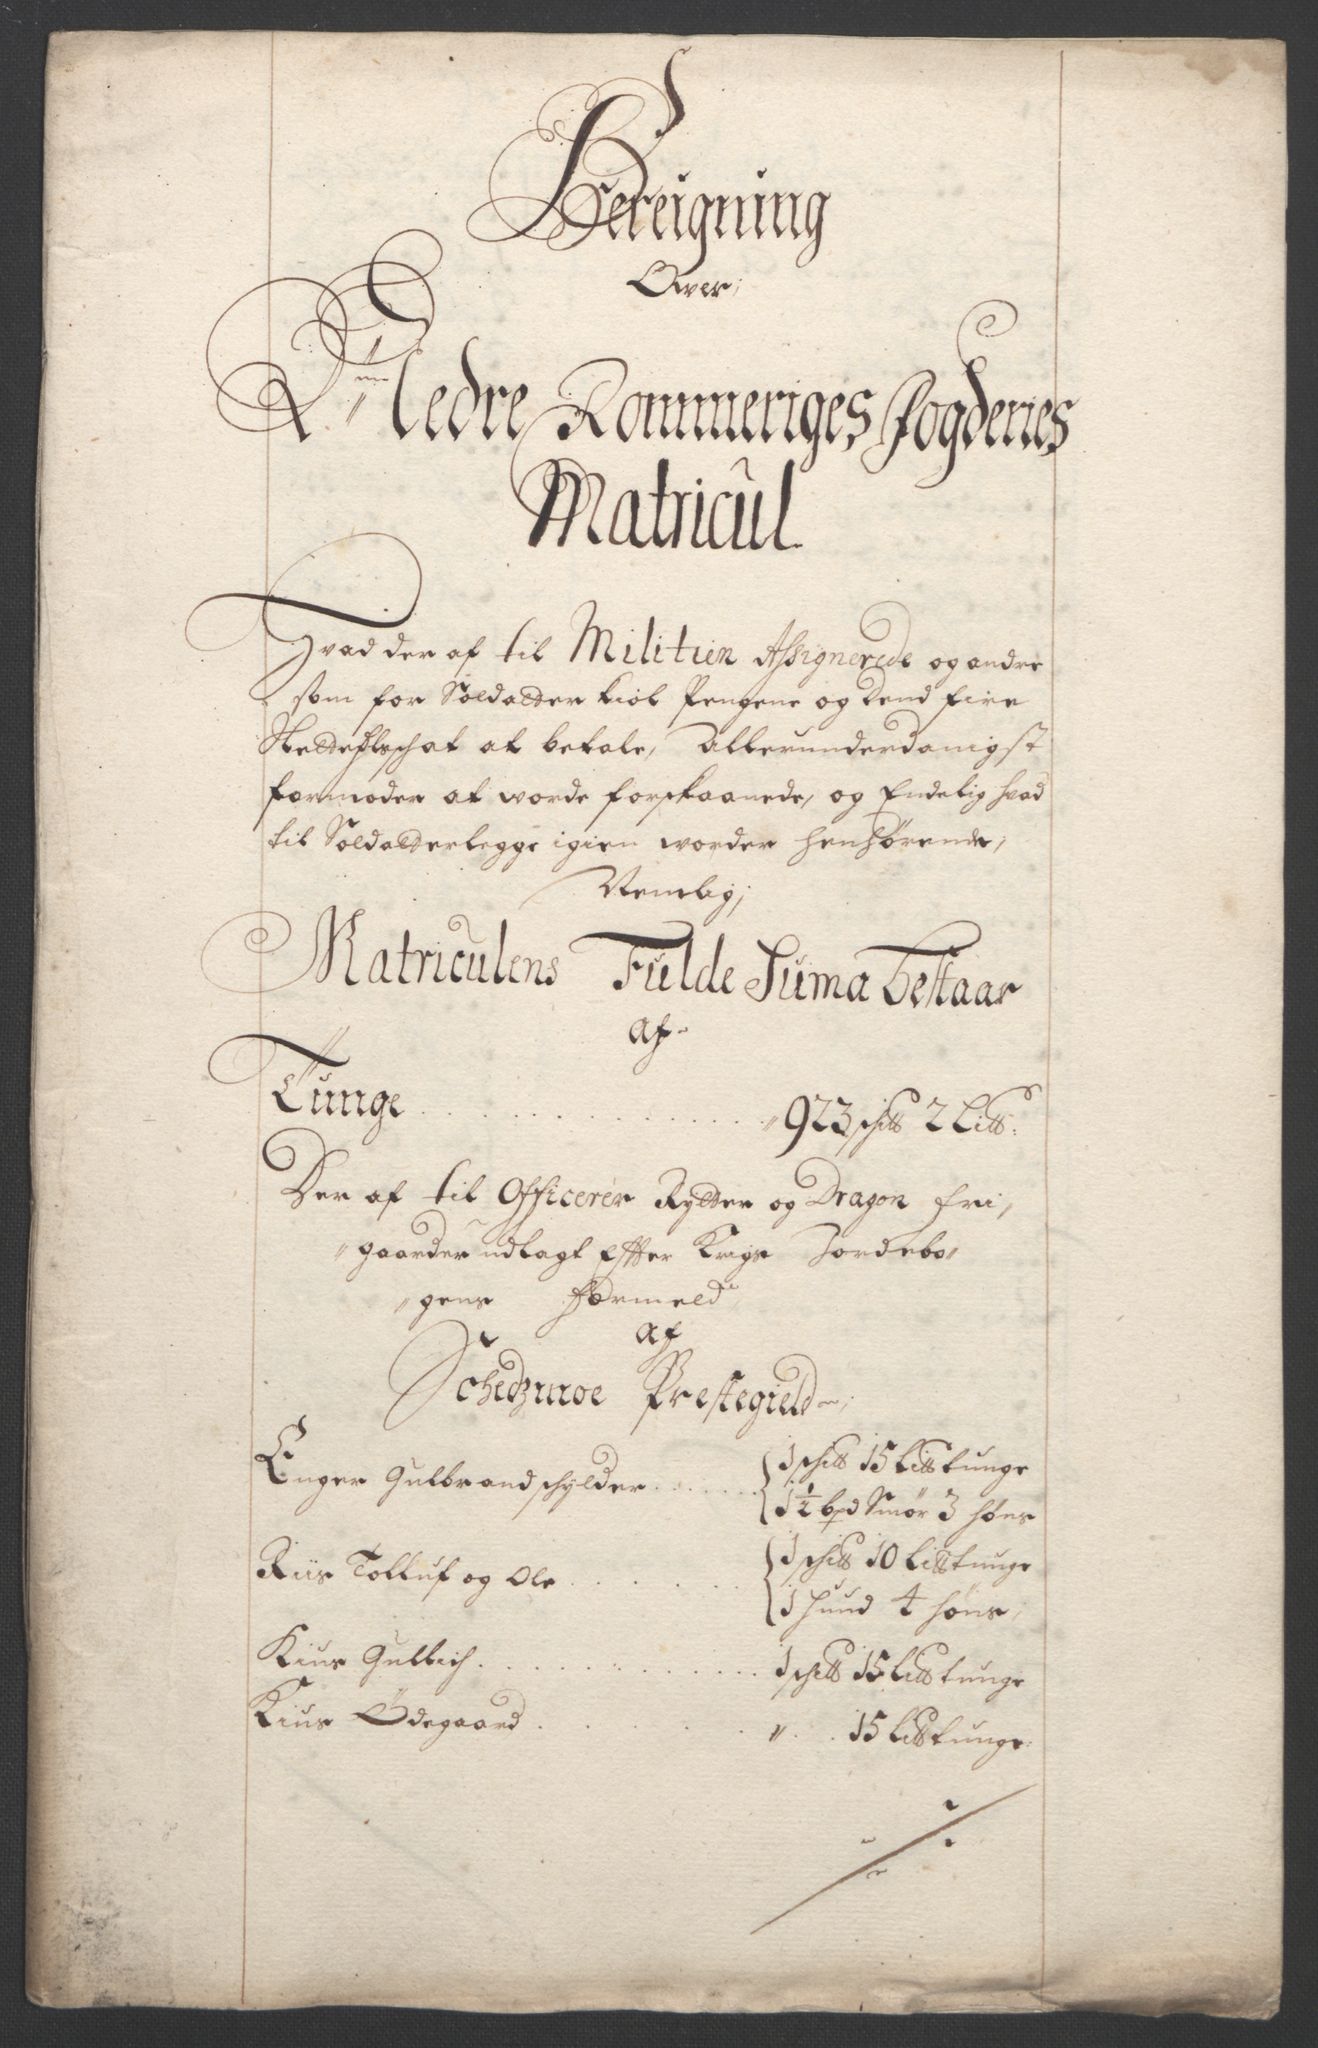 Bereigning
Over,
Nedre Rommeriges Fogderies
Matricul
Hvad der af til Militien Assignerede og andre
som for Soldatter kiol Pengene og dend fire
at betale, Allerunderdanigst
formoder at worde forskaanede, og Endelig hvad
til Soldatterlegge igien worder henhørende,
Nemlig,
Matriculens Fulde Suma bestaar
af
Tunge . . . . . . . . . . " 923 sch℔ 2 Lis℔
Der af til Officerer Rytter og Dragon fri,
"gaarder udlagt Effter Krigs Jordebo"
"gens formeld
af
Schedzmoe Prestegield
Enger Gulbrand schylder . . . . . . { 1 sch℔ 15 Lis℔ tunge
1½ bpd Smør 3 høns
Riis Tolluf og Ole . . . . . . { 1 sch℔ 10 Lis℔ tunge
1 Hund 4 høns,
Kius Gulbich . . . . . . . . . . 1 sch℔ 15 Lis℔ tunge
Kius Ødegaard . . . . . . " . . 15 Lis℔ tunge